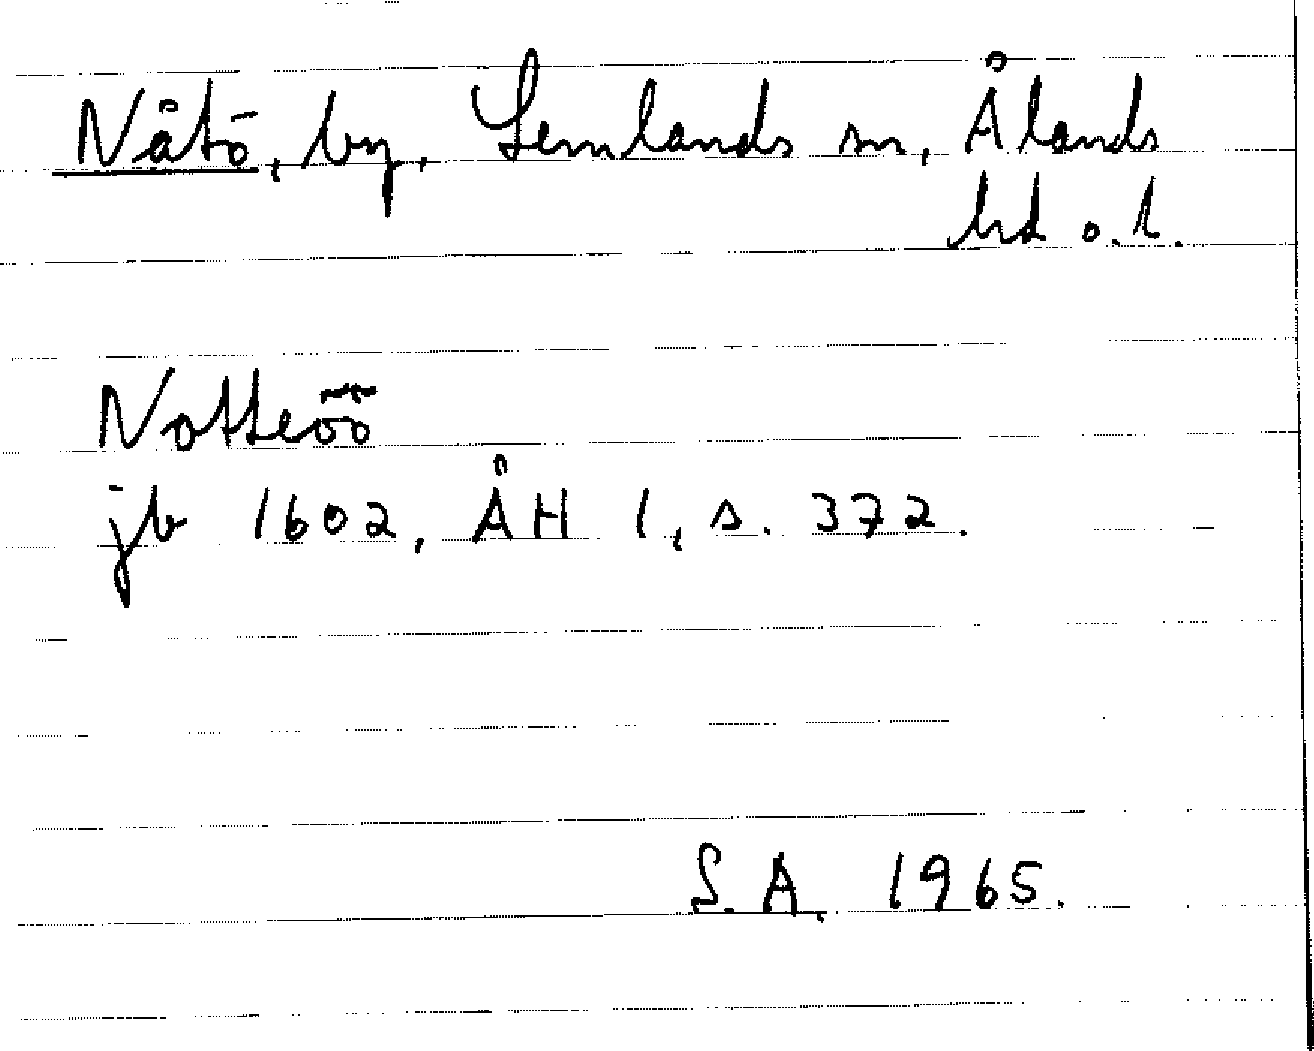 Nåtö, by, Lemlands sn, Ålands
hd o. l.
Notteöö
jb 1602, ÅH 1, s. 372.
S.A. 1965.